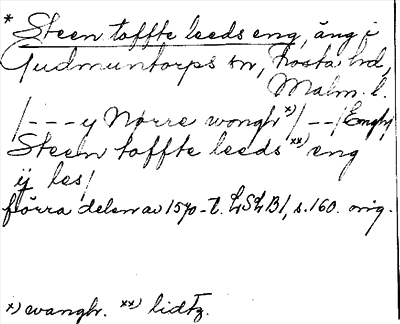 * Steen toffte leeds eng, äng i
Gudmuntorps sn, Frosta hd,
Malm. l.
/--- y Nørre wongh x)/--/Engh/
Steen toffte leeds xx) eng
ÿ les/
förra delen av 1570-t. LSLB1, s. 160. orig.
x) wangh. xx) lidtz.